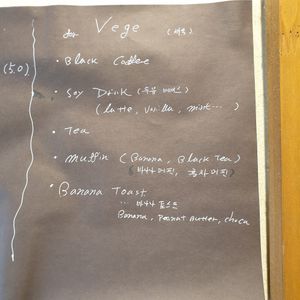 for Vege (채식)
• Black Coffee
(5.0)
• Soy Drink (두유 베이스)
(latte, vanilla, mint...)
• Tea
• muffin (Banana, Black Tea)
(바나나 머핀, 홍차머핀)
• Banana Toast
... 바나나 토스트
Banana, Peanut Butter, choco